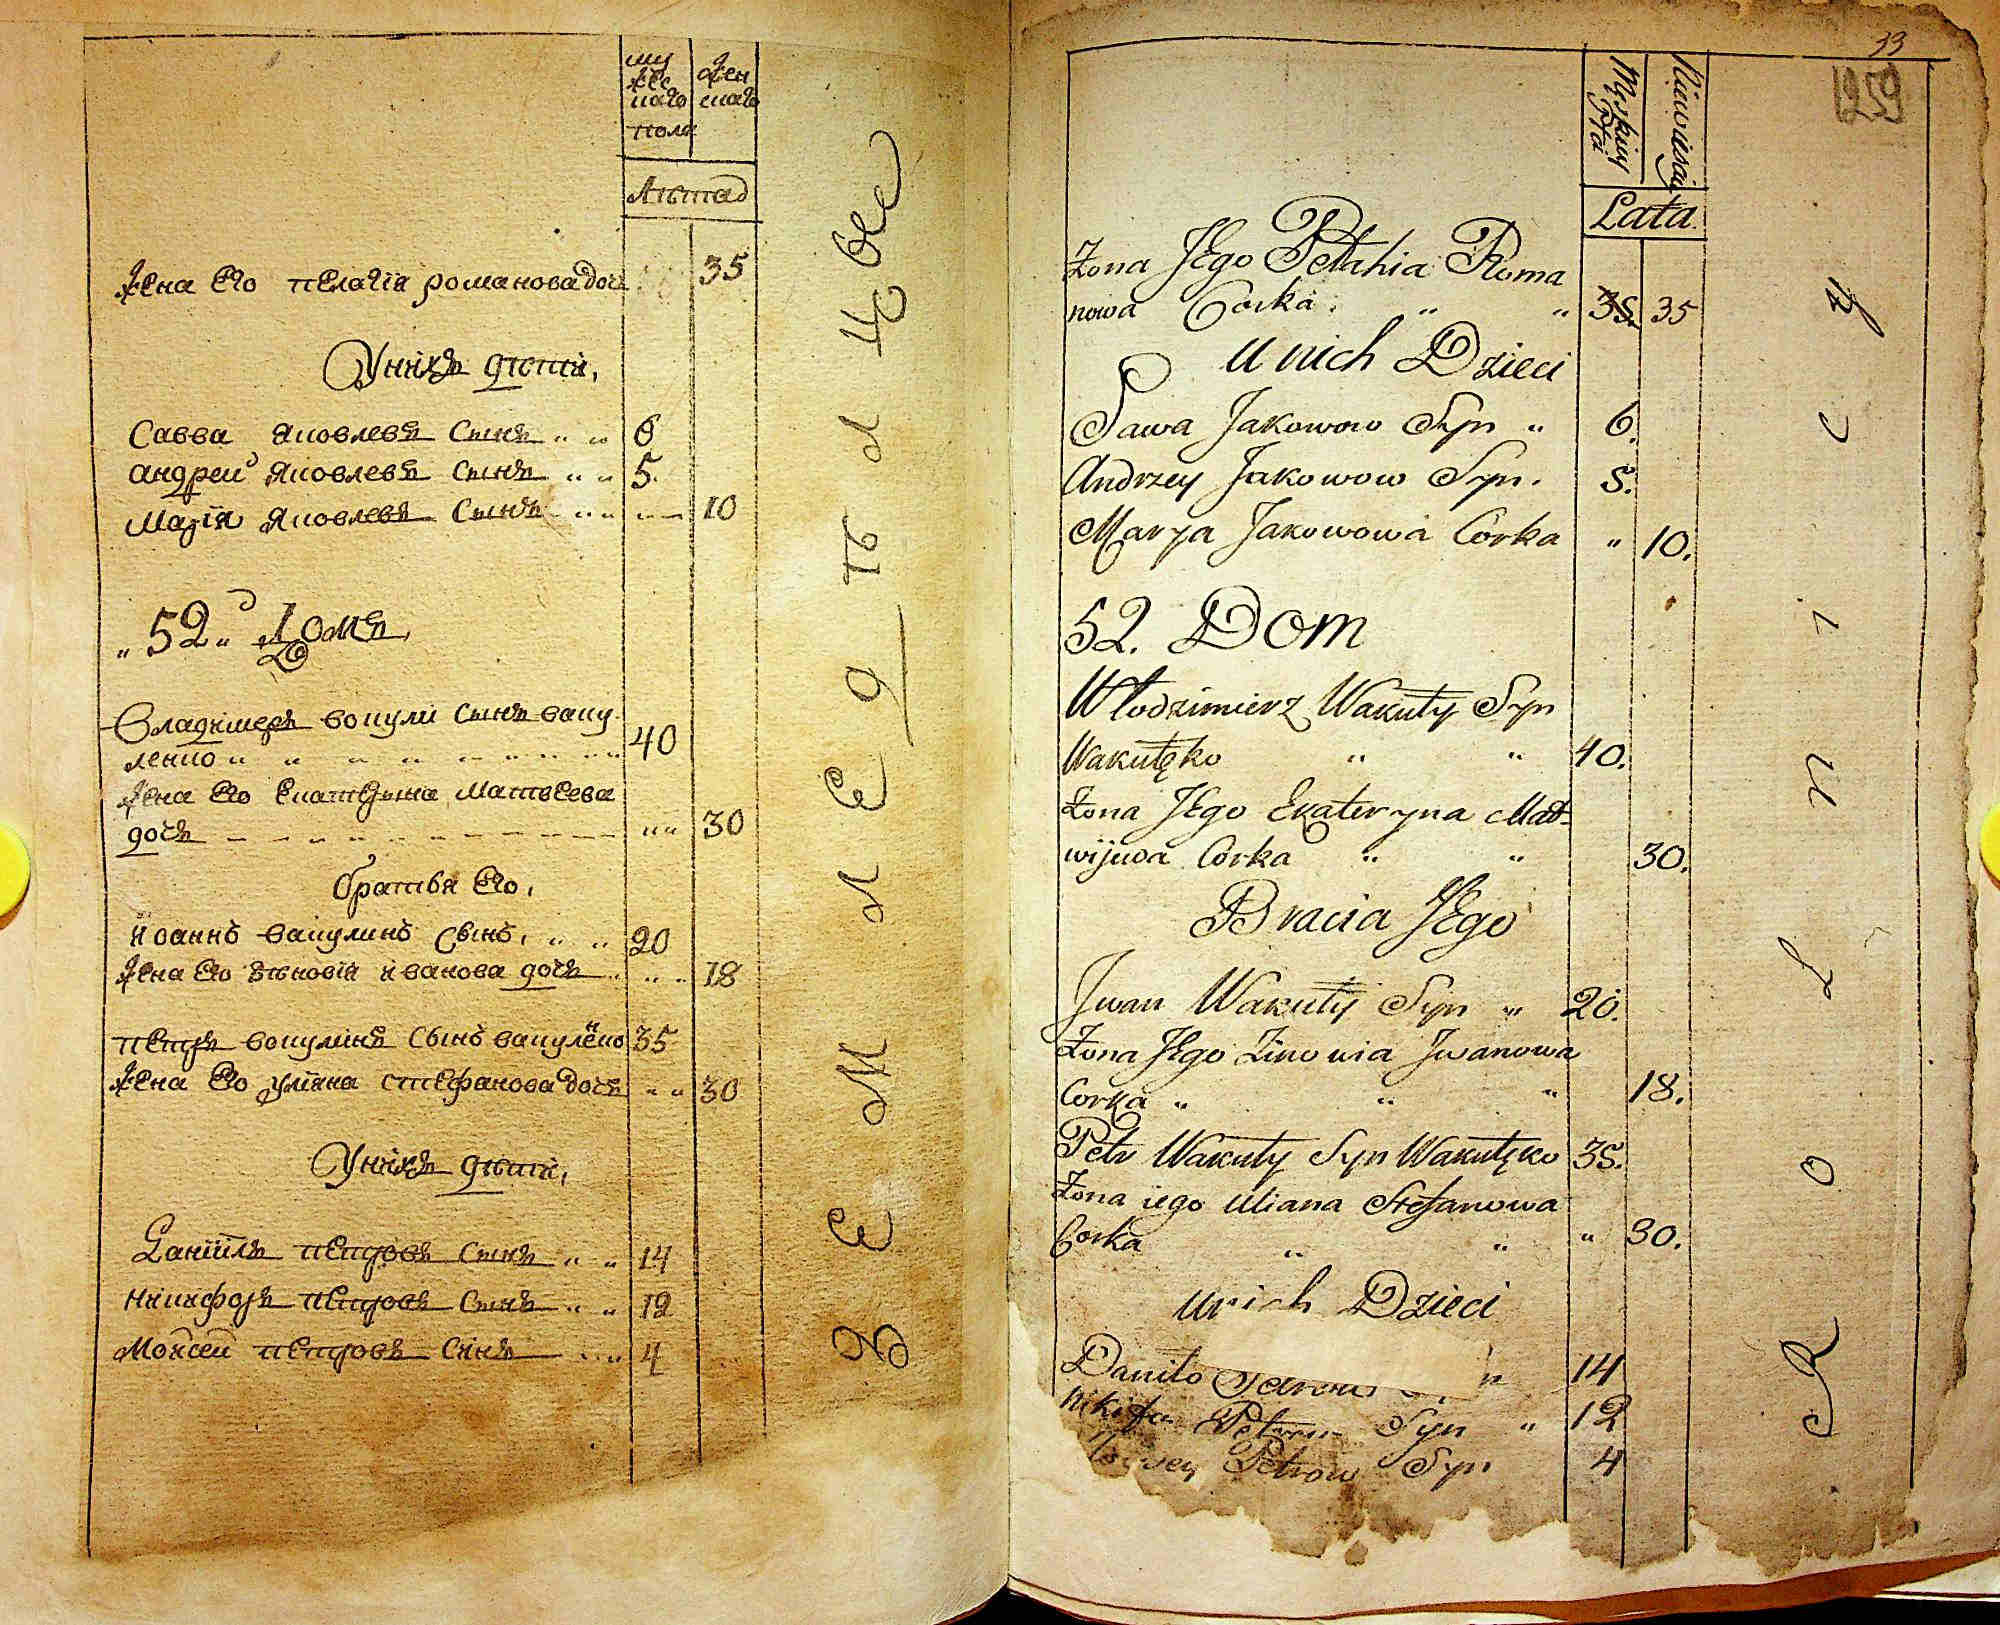 мужескаго
женскаго
пола
Лѣта
жена Его пЕлагія романова дочь 35
Унихъ дѣти,
Савва Яковлевъ Сынъ „ „ 6
андреи Яковлевъ Сынъ „ „ 5.
Марія Яковлевъ Сынъ „ „ 10
„ 52 „ Домъ,
Владимеръ вокули Сынъ ваку-
ленко „ „ „ „ „ 40
жена Его Екатерына Матвеева
дочь „ „ 30
братья Его,
Иоаннъ вакулинъ Сынъ, „ „ 20
жена Его Зѣновія иванова дочь „ „ 18
пЕтръ вокулинъ Сынъ вакулёнко 35
жена Его уліяна стЕфанова дочь „ „ 30
Унихъ дѣти,
Даніилъ пЕтровъ Сынъ „ „ 14
никифоръ пЕтровъ Сынъ „ „ 12
Моисей пЕтровъ Сынъ „ „ 4
зЕмлЕдѣлцЫ
33
1259
Męskiey Płci
Niewiesciey
Lata.
Żona JEgo Pelahia Roma
nowa Corka. „ „ 35. 35
u nich Dzieci
Sawa Jakowow Syn „ 6.
Andrzey Jakowow Syn. 5.
Marya Jakowowa Corka „ 10.
52. Dom
Włodzimierz Wakuły Syn
Wakulęko „ „ 40.
Żona JEgo Ekateryna Mat-
wijewa Corka „ „ 30.
Bracia JEgo
Jwan Wakuły Syn „ 20.
Żona JEgo Zinowia Jwanowa
Corka „ „ „ 18.
Petr Wakuły Syn Wakulęko 35.
Żona iego Uliana Stefanowa
Corka „ „ „ 30.
unich Dzieci
Daniło 14
Nikifor Petrow Syn „ 12
Petrow Syn 4
Rolnicy